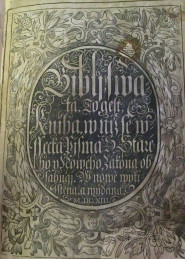 Biblj Swa
tá. To gest,
Kniha w njž se w
ssecka Pjsma S. Staré
ho y Nowého Zákona ob
sahugj. W nowě wyti
sstěná a wydaná.
M.DC.XIII.